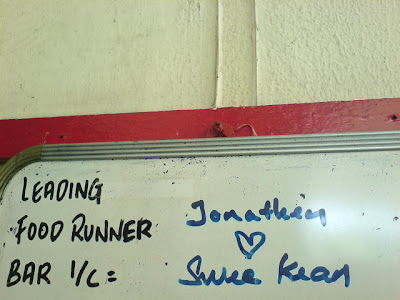 LEADING
FOOD RUNNER
BAR I/C = Swee Kean